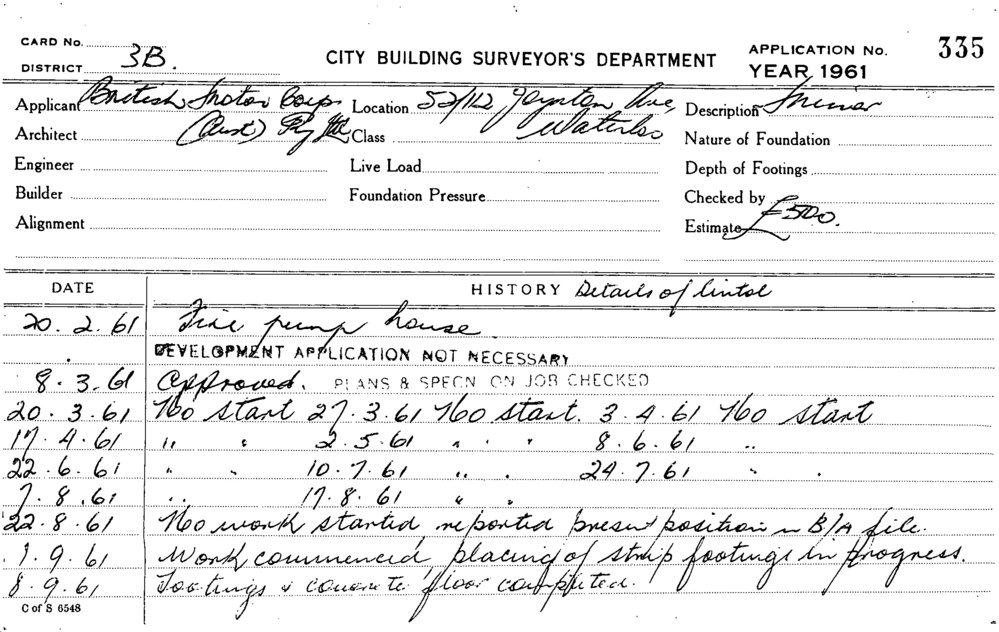 CARD No. 3B. CITY BUILDING SURVEYOR'S DEPARTMENT APPLICATION No. 335
DISTRICT YEAR 1961
Applicant British Motor Corp. Location 52/112 Joynton Ave, Description Minor
Architect (Aust) Pty Ltd Class Waterloo Nature of Foundation
Engineer Live Load Depth of Footings
Builder Foundation Pressure Checked by
Alignment Estimate £500.
DATE HISTORY Details of lintol
20. 2. 61 Fire pump house
DEVELOPMENT APPLICATION NOT NECESSARY
8. 3. 61 Approved. PLANS & SPECN ON JOB CHECKED
20. 3. 61 No start 27. 3. 61 No start. 3. 4. 61 No start
17. 4. 61 " " 2. 5. 61 " " " 8. 6. 61 "
22. 6. 61 " " 10. 7. 61 " " 24. 7. 61 " "
7. 8. 61 " 17. 8. 61 " "
22. 8. 61 No work started, reported present position in B/A file.
1. 9. 61 Work commenced, placing of strip footings in progress.
8. 9. 61 Footings & concrete floor completed.
C of S 6548